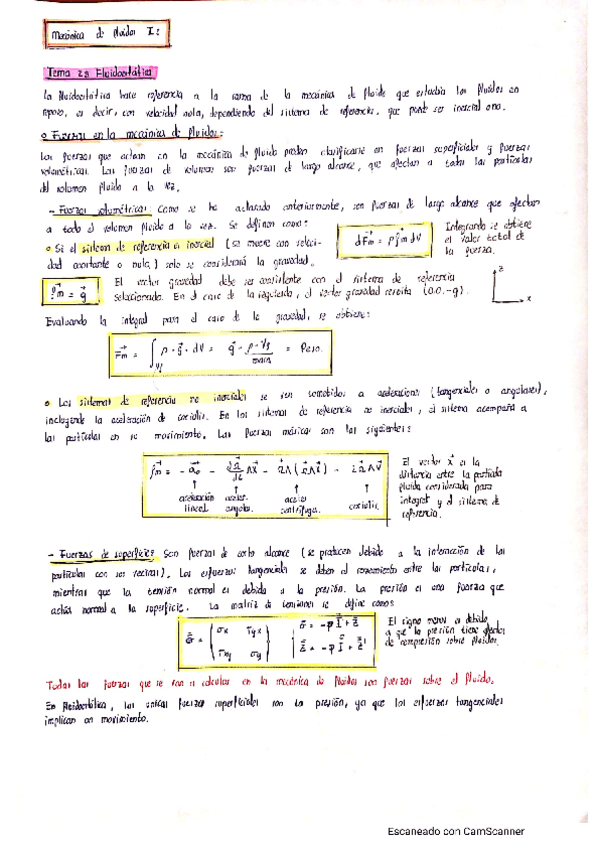 Mecánica de fluidos I:
Tema 2: Fluidoestática
La fluidoestática hace referencia a la rama de la mecánica de fluido que estudia los fluidos en
reposo, es decir, con velocidad nula, dependiendo del sistema de referencia, que puede ser inercial o no.
o Fuerzas en la mecánica de fluidos:
Las fuerzas que actúan en la mecánica de fluido pueden clasificarse en fuerzas superficiales y fuerzas
volumétricas. Las fuerzas de volumen son fuerzas de largo alcance, que afectan a todas las partículas
del volumen fluido a la vez.
- Fuerzas volumétricas: Como se ha aclarado anteriormente, son fuerzas de largo alcance que afectan
a todo el volumen fluido a la vez. Se definen como:
dFm = ρ fm dV
Integrando se obtiene
el valor total de
la fuerza.
o Si el sistema de referencia es inercial (se mueve con veloci-
dad constante o nula) solo se considerará la gravedad.
fm = g
El vector gravedad debe ser consistente con el sistema de referencia
seleccionado. En el caso de la izquierda, el vector gravedad sería (0,0,-g).
z
x
Evaluando la integral para el caso de la gravedad, se obtiene:
Fm = ∫Vf ρ · g · dV = g · ρ · Vf = Peso.
masa
o Los sistemas de referencia no inerciales se ven sometidos a aceleraciones (tangenciales o angulares),
incluyendo la aceleración de coriolis. En los sistemas de referencia no inerciales, el sistema acompaña a
las partículas en su movimiento. Las fuerzas másicas son las siguientes:
fm = - a0 - dΩ/dt ∧ x - Ω ∧ (Ω ∧ x) - 2Ω ∧ V
aceleración lineal
aceler. angular.
aceler. centrífuga.
coriolis.
El vector x es la
distancia entre la partícula
fluida considerada para
integrar y el sistema de
referencia.
- Fuerzas de superficie: Son fuerzas de corto alcance (se producen debido a la interacción de las
partículas con sus vecinas). Los esfuerzos tangenciales se deben al rozamiento entre las partículas,
mientras que la tensión normal es debida a la presión. La presión es una fuerza que
actúa normal a la superficie. La matriz de tensiones se define como:
σ = (σx τyx
τxy σy)
σ = -p I + τ
El signo menos es debido
a que la presión tiene efectos
de compresión sobre fluidos.
Todas las fuerzas que se van a calcular en la mecánica de fluidos son fuerzas sobre el fluido.
En fluidoestática, las únicas fuerzas superficiales son la presión, ya que los esfuerzos tangenciales
implican un movimiento.
Escaneado con CamScanner